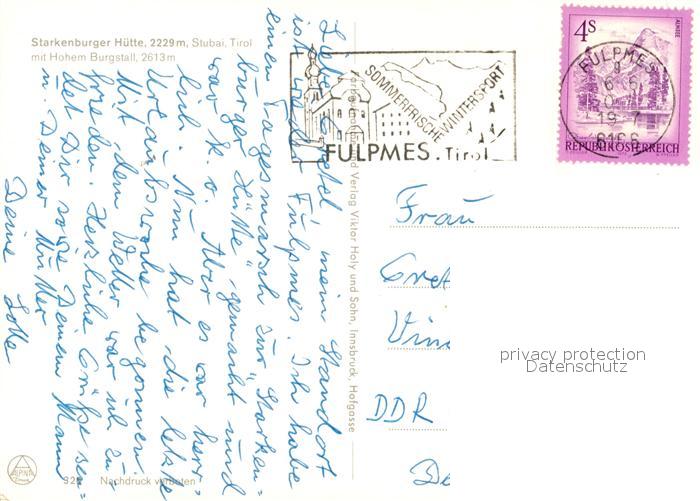 Starkenburger Hütte, 2229m, Stubai, Tirol
mit Hohem Burgstall, 2613m
SOMMERFRISCHE WINTERSPORT
FULPMES. Tirol
4S
ALMSEE
REPUBLIK ÖSTERREICH
FULPMES
6166
mein Standort
ist Fulpmes. Ich habe
einen Tagesmarsch zur "Starken-
burger Hütte" gemacht und
war k.o. Aber es war herr-
lich. Nun hat die letzte
Urlaubswoche begonnen.
Mit dem Wetter war ich zu-
frieden. Herzliche Grüße sen-
det Dir sowie Deinem Mann
u. Deiner Mutter
Deine Lotte
Verlag Viktor Holy und Sohn, Innsbruck, Hofgasse
Frau
Gret
DDR
De
privacy protection
Datenschutz
Nachdruck verboten